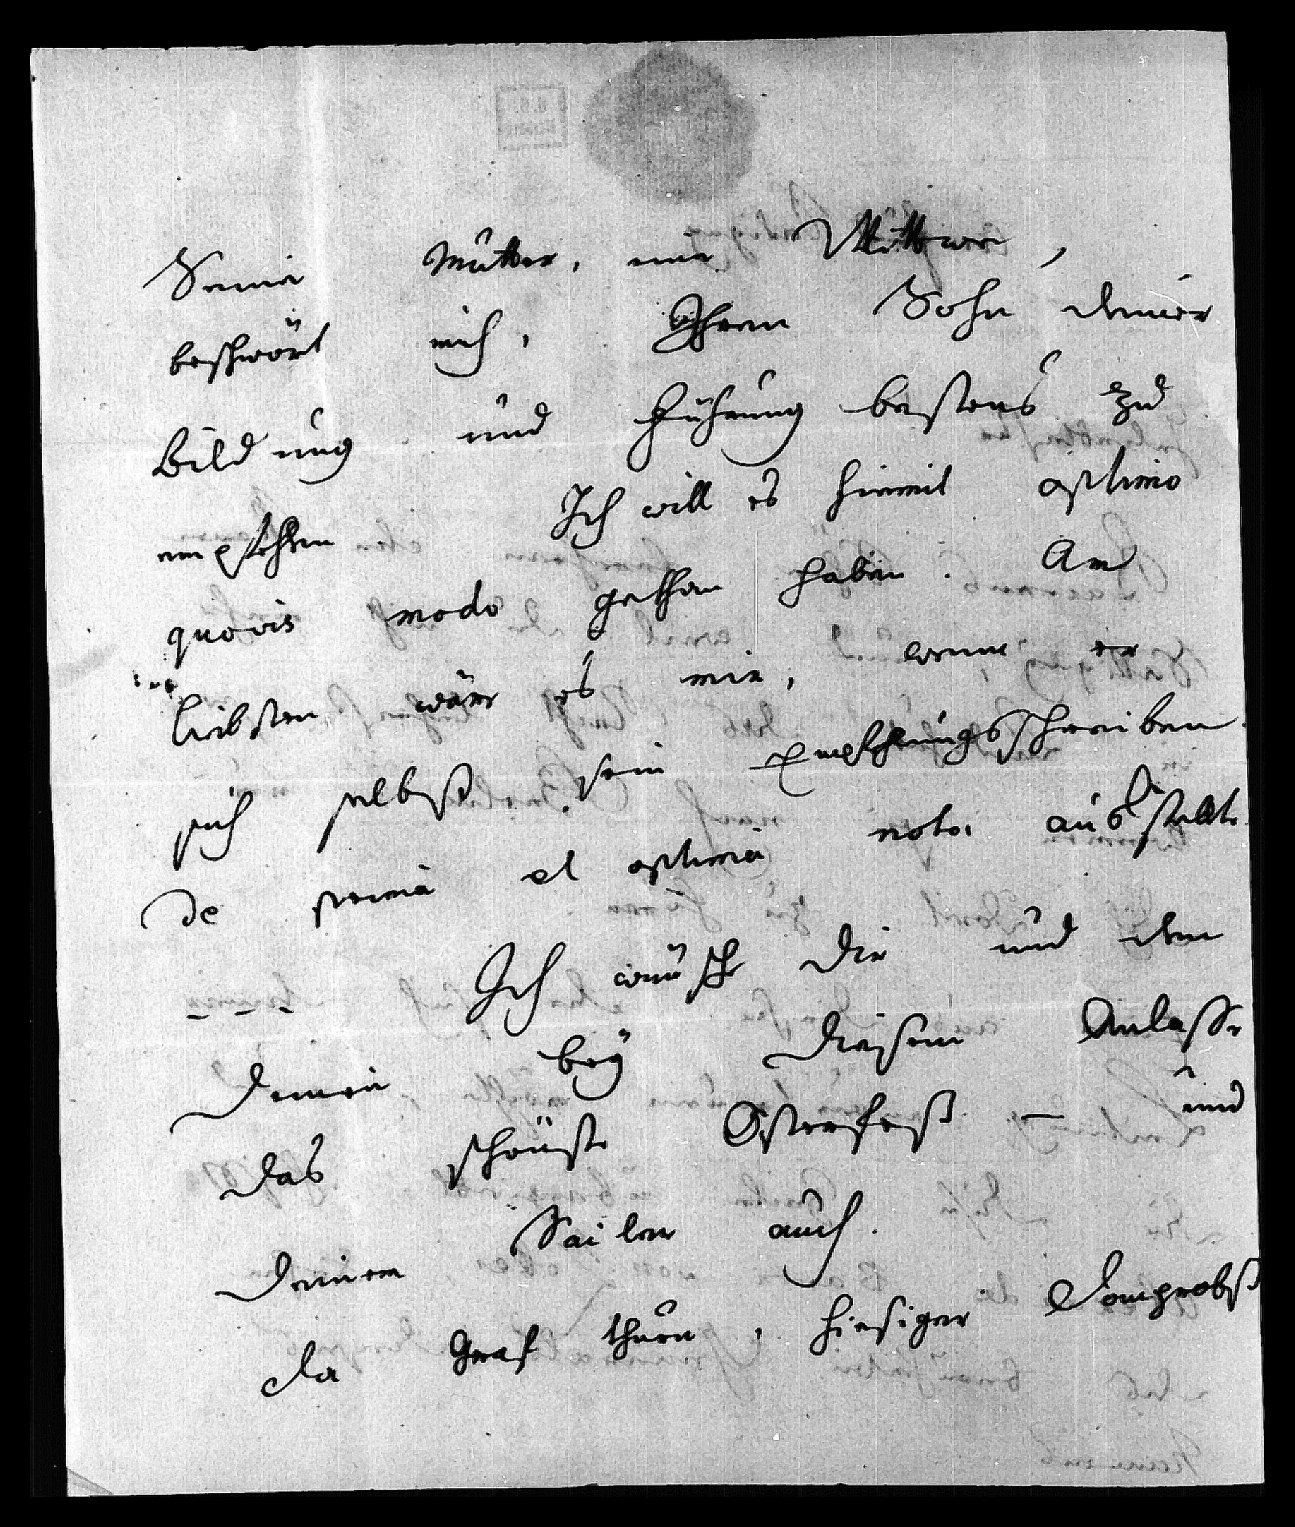 Seine Mutter, eine Wittwe,
beschwört mich, Ihren Sohn deiner
Bildung und Führung bestens zu
empfehlen Ich will es hiemit optimo
quovis modo gethan haben. Am
liebsten wäre es mir, wenn er
sich selbst sein Empfehlungsschreiben
de prima et optima nota ausstellte.
Ich wünsche Dir und den
Deinen bey diesem Anlasse
das schönste Osterfest — und
Deinem Sailer auch.
Da Graf Thurn, hiesiger Domprobst